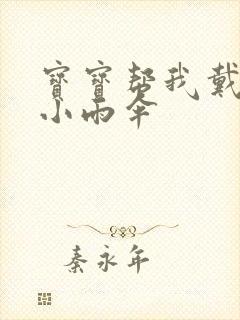 寶寶帮我戴
小雨伞
秦永年